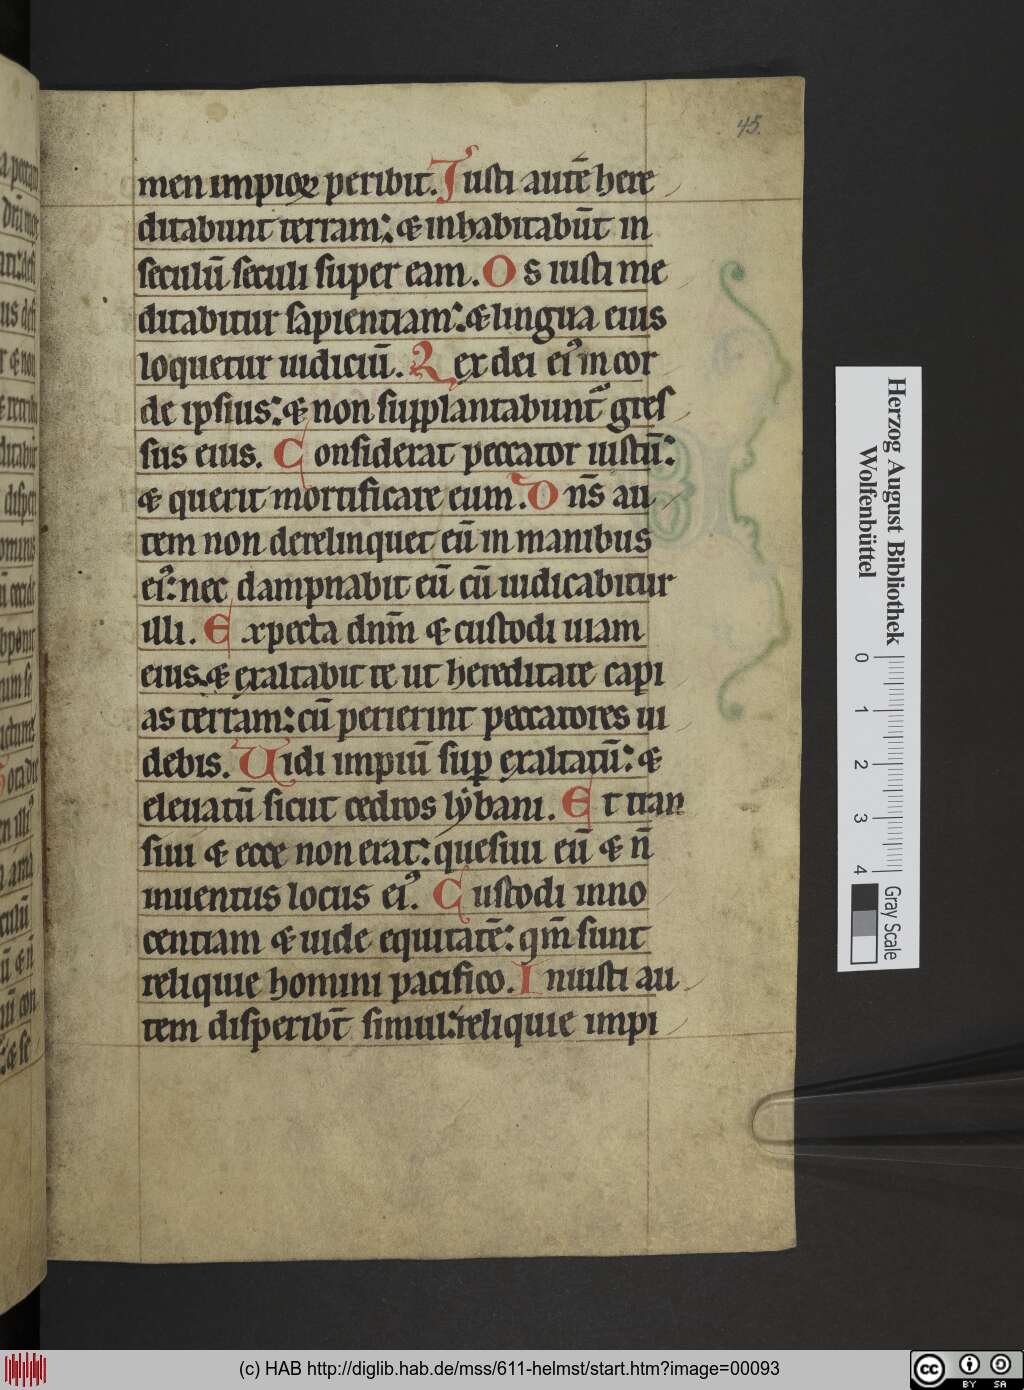 45.
men impioꝝ peribit. Iusti autē here
ditabunt terram: & inhabitabūt in
seculū seculi super eam. Os iusti me
ditabitur sapientiam: & lingua eius
loquetur iudiciū. Lex dei eiꝰ in cor
de ipsius: & non supplantabunt᷑ gres
sus eius. Considerat peccator iustū:
& querit mortificare eum. Dn̄s au
tem non derelinquet eū in manibus
eiꝰ: nec dampnabit eū cū iudicabitur
illi. Expecta dnm̄ & custodi uiam
eius & exaltabit te ut hereditate capi
as terram: cū perierint peccatores ui
debis. Uidi impiū suꝑ exaltatū: &
eleuatū sicut cedros lybani. Et tran
siui & ecce non erat: quesiui eū & n̄
inuentus locus eiꝰ. Custodi inno
centiam & uide equitatē: qm̄ sunt
reliquie homini pacifico. Iniusti au
tem disperibt̄ simul: reliquie impi
Herzog August Bibliothek
Wolfenbüttel
0 1 2 3 4
Gray Scale
(c) HAB http://diglib.hab.de/mss/611-helmst/start.htm?image=00093
cc BY SA